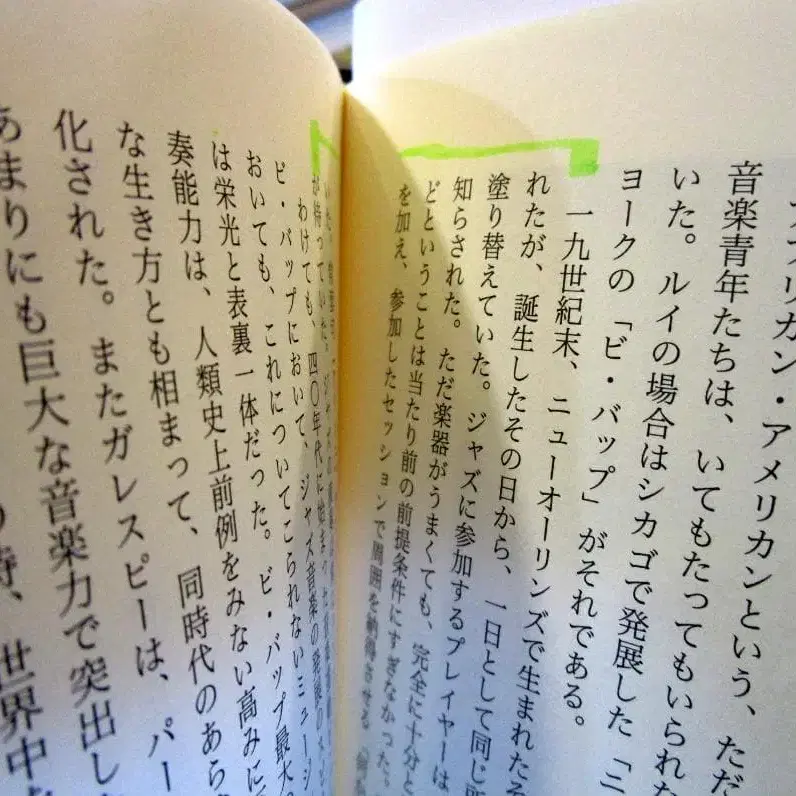 アフリカン・アメリカンという、ただ
音楽青年たちは、いてもたってもいられな
いた。ルイの場合はシカゴで発展した「ニ
ヨークの「ビ・バップ」がそれである。
一九世紀末、ニューオーリンズで生まれたそ
れたが、誕生したその日から、一日として同じ所
塗り替えていた。ジャズに参加するプレイヤーは
知らされた。ただ楽器がうまくても、完全に十分と
どということは当たり前の前提条件にすぎなかった。
を加え、参加したセッションで周囲を納得させる
が待っていた。
わけても、四〇年代に始まった
ビ・バップにおいて、ジャズ音楽の
おいても、これについてこられないミュージ
は栄光と表裏一体だった。ビ・バップ最大の
奏能力は、人類史上前例をみない高みに
な生き方とも相まって、同時代のあら
化された。またガレスピーは、パー
あまりにも巨大な音楽力で突出し
時、世界中